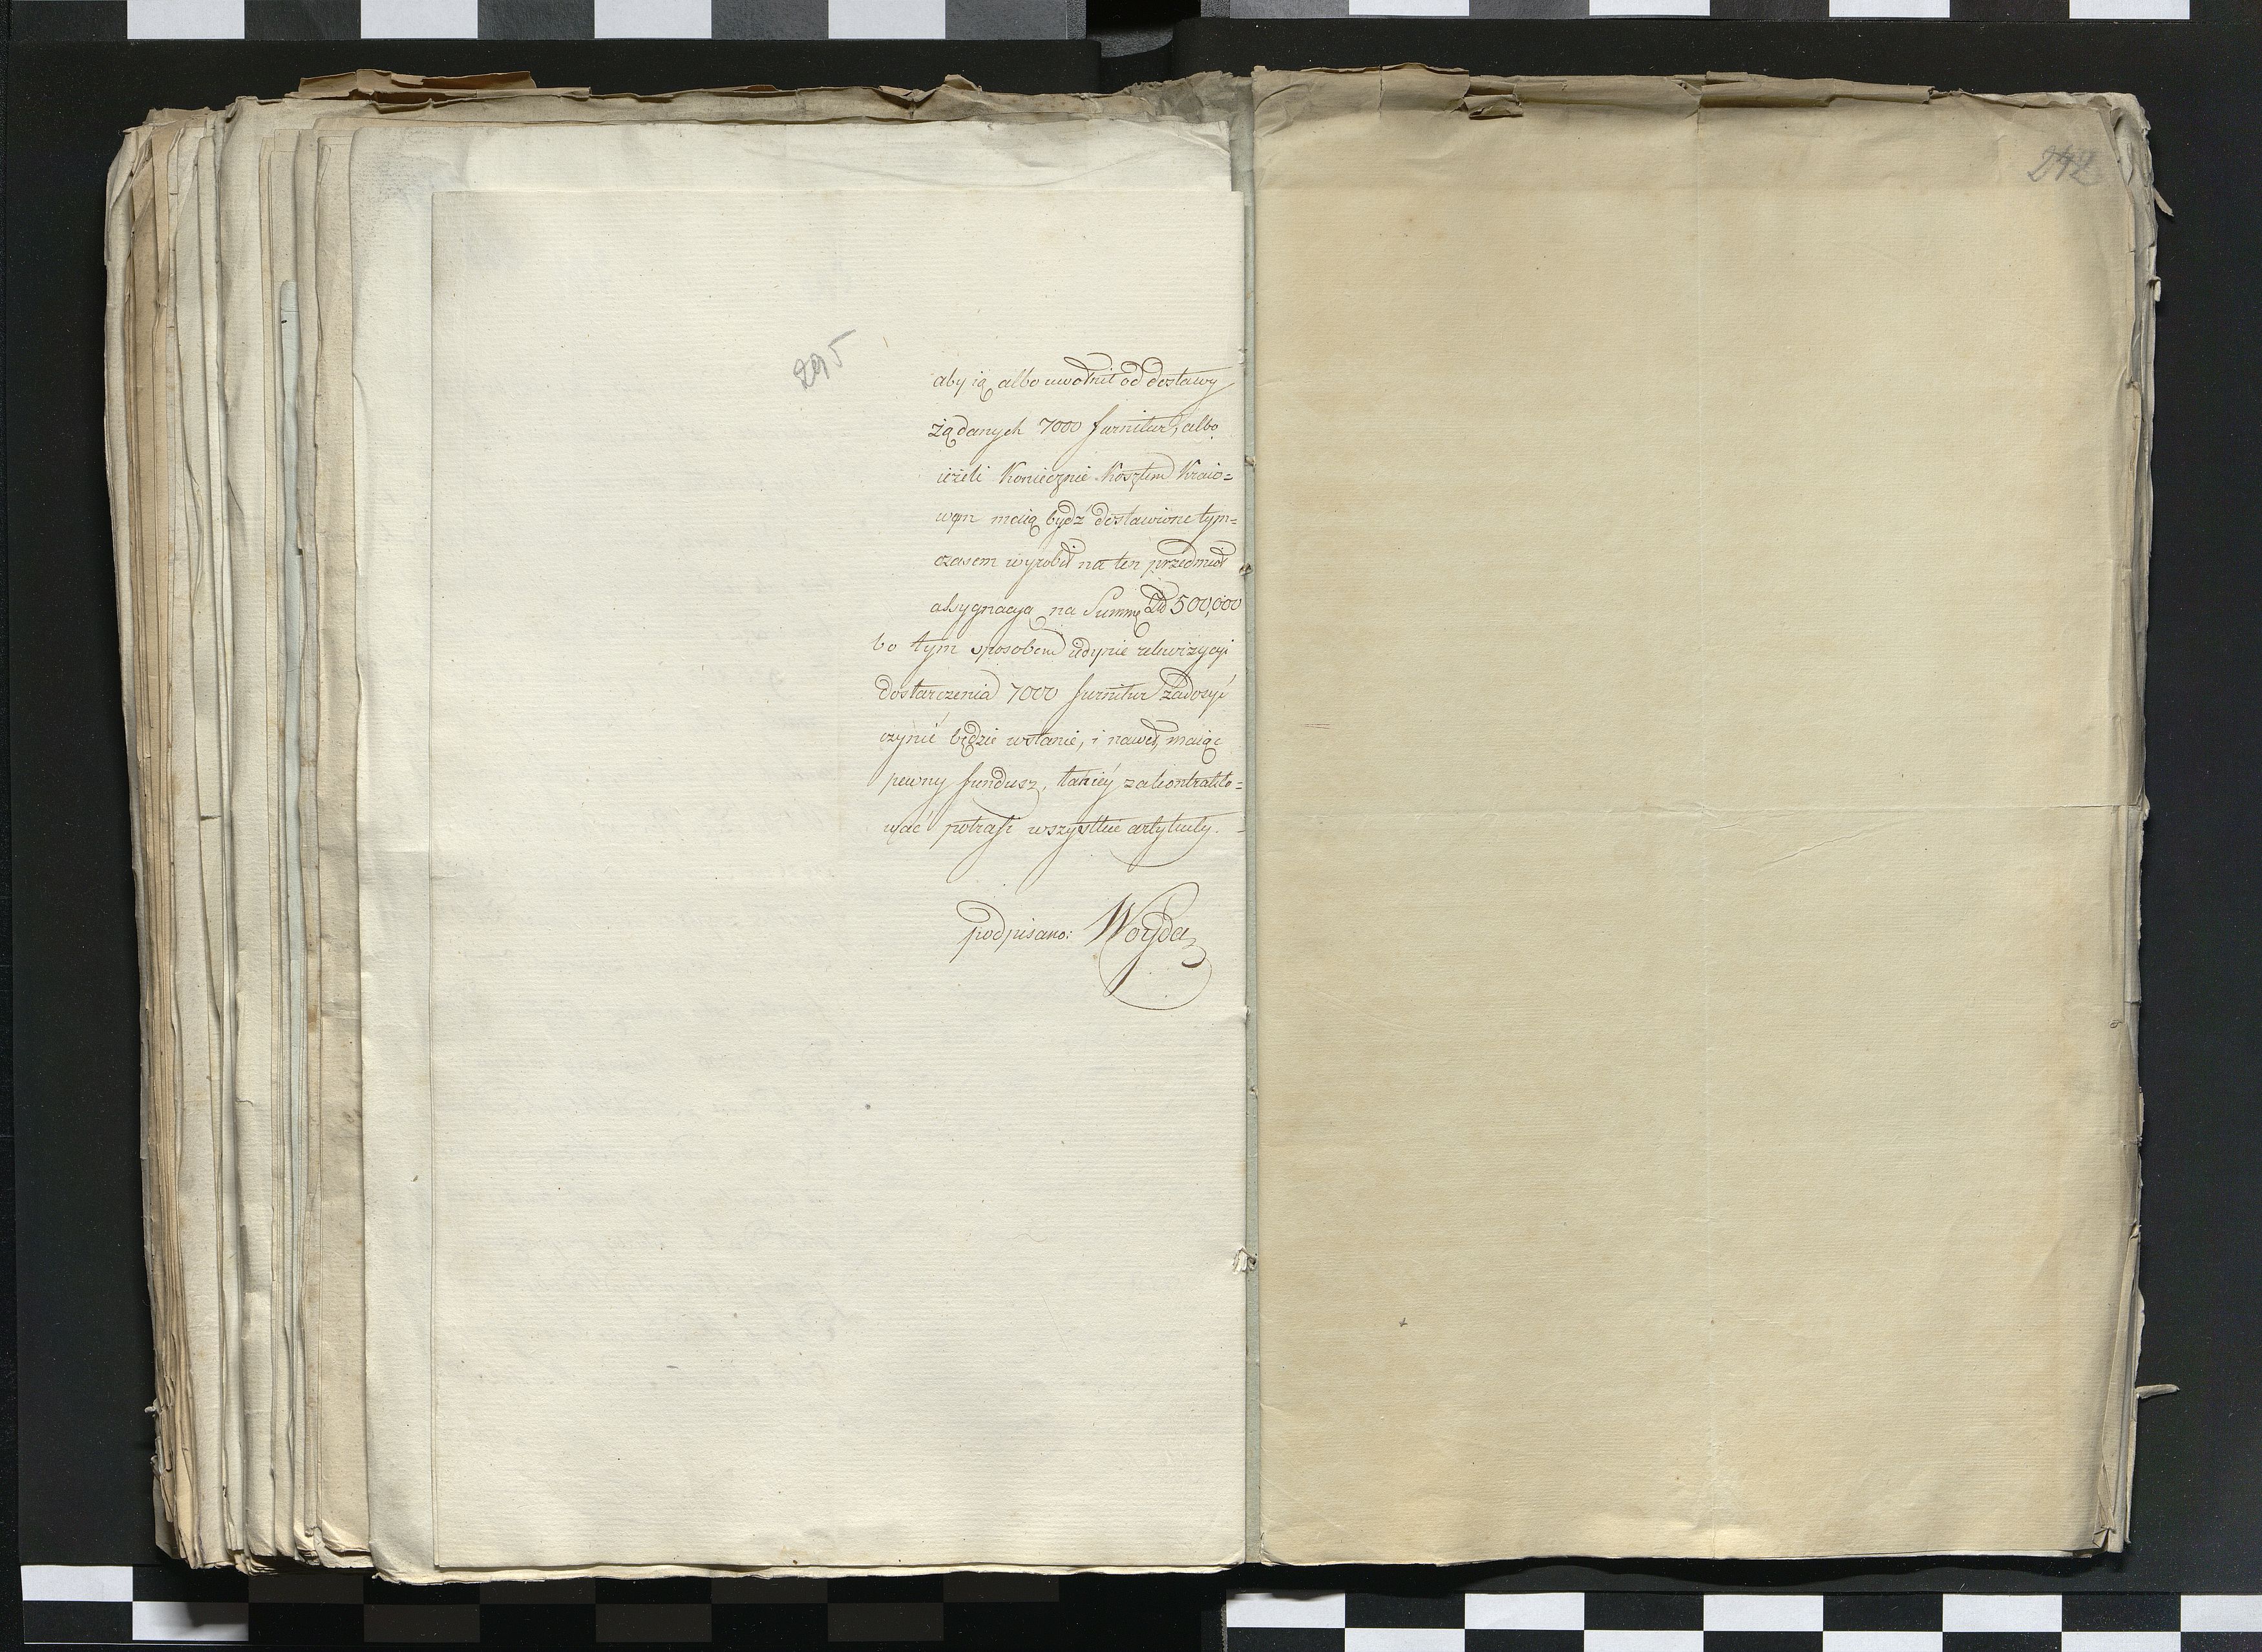 295
aby ią albo uwolnił od dostawy
żądanych 7000 furnitur, albo
ieżeli Koniecznie Kosztem Kraio=
wym maią bydź dostawione tym=
czasem wyrobił na ten przedmiot
assygnacyą na Summę Zł 500,000
bo tym sposobem iedynie rekwizycyi
dostarczenia 7000 furnitur zadosyć
czynić będzie wstanie, i nawet, maiąc
pewny fundusz, taniéy zakontrakto=
wać potrafi wszystkie artykuły.
podpisano: Woyda
242